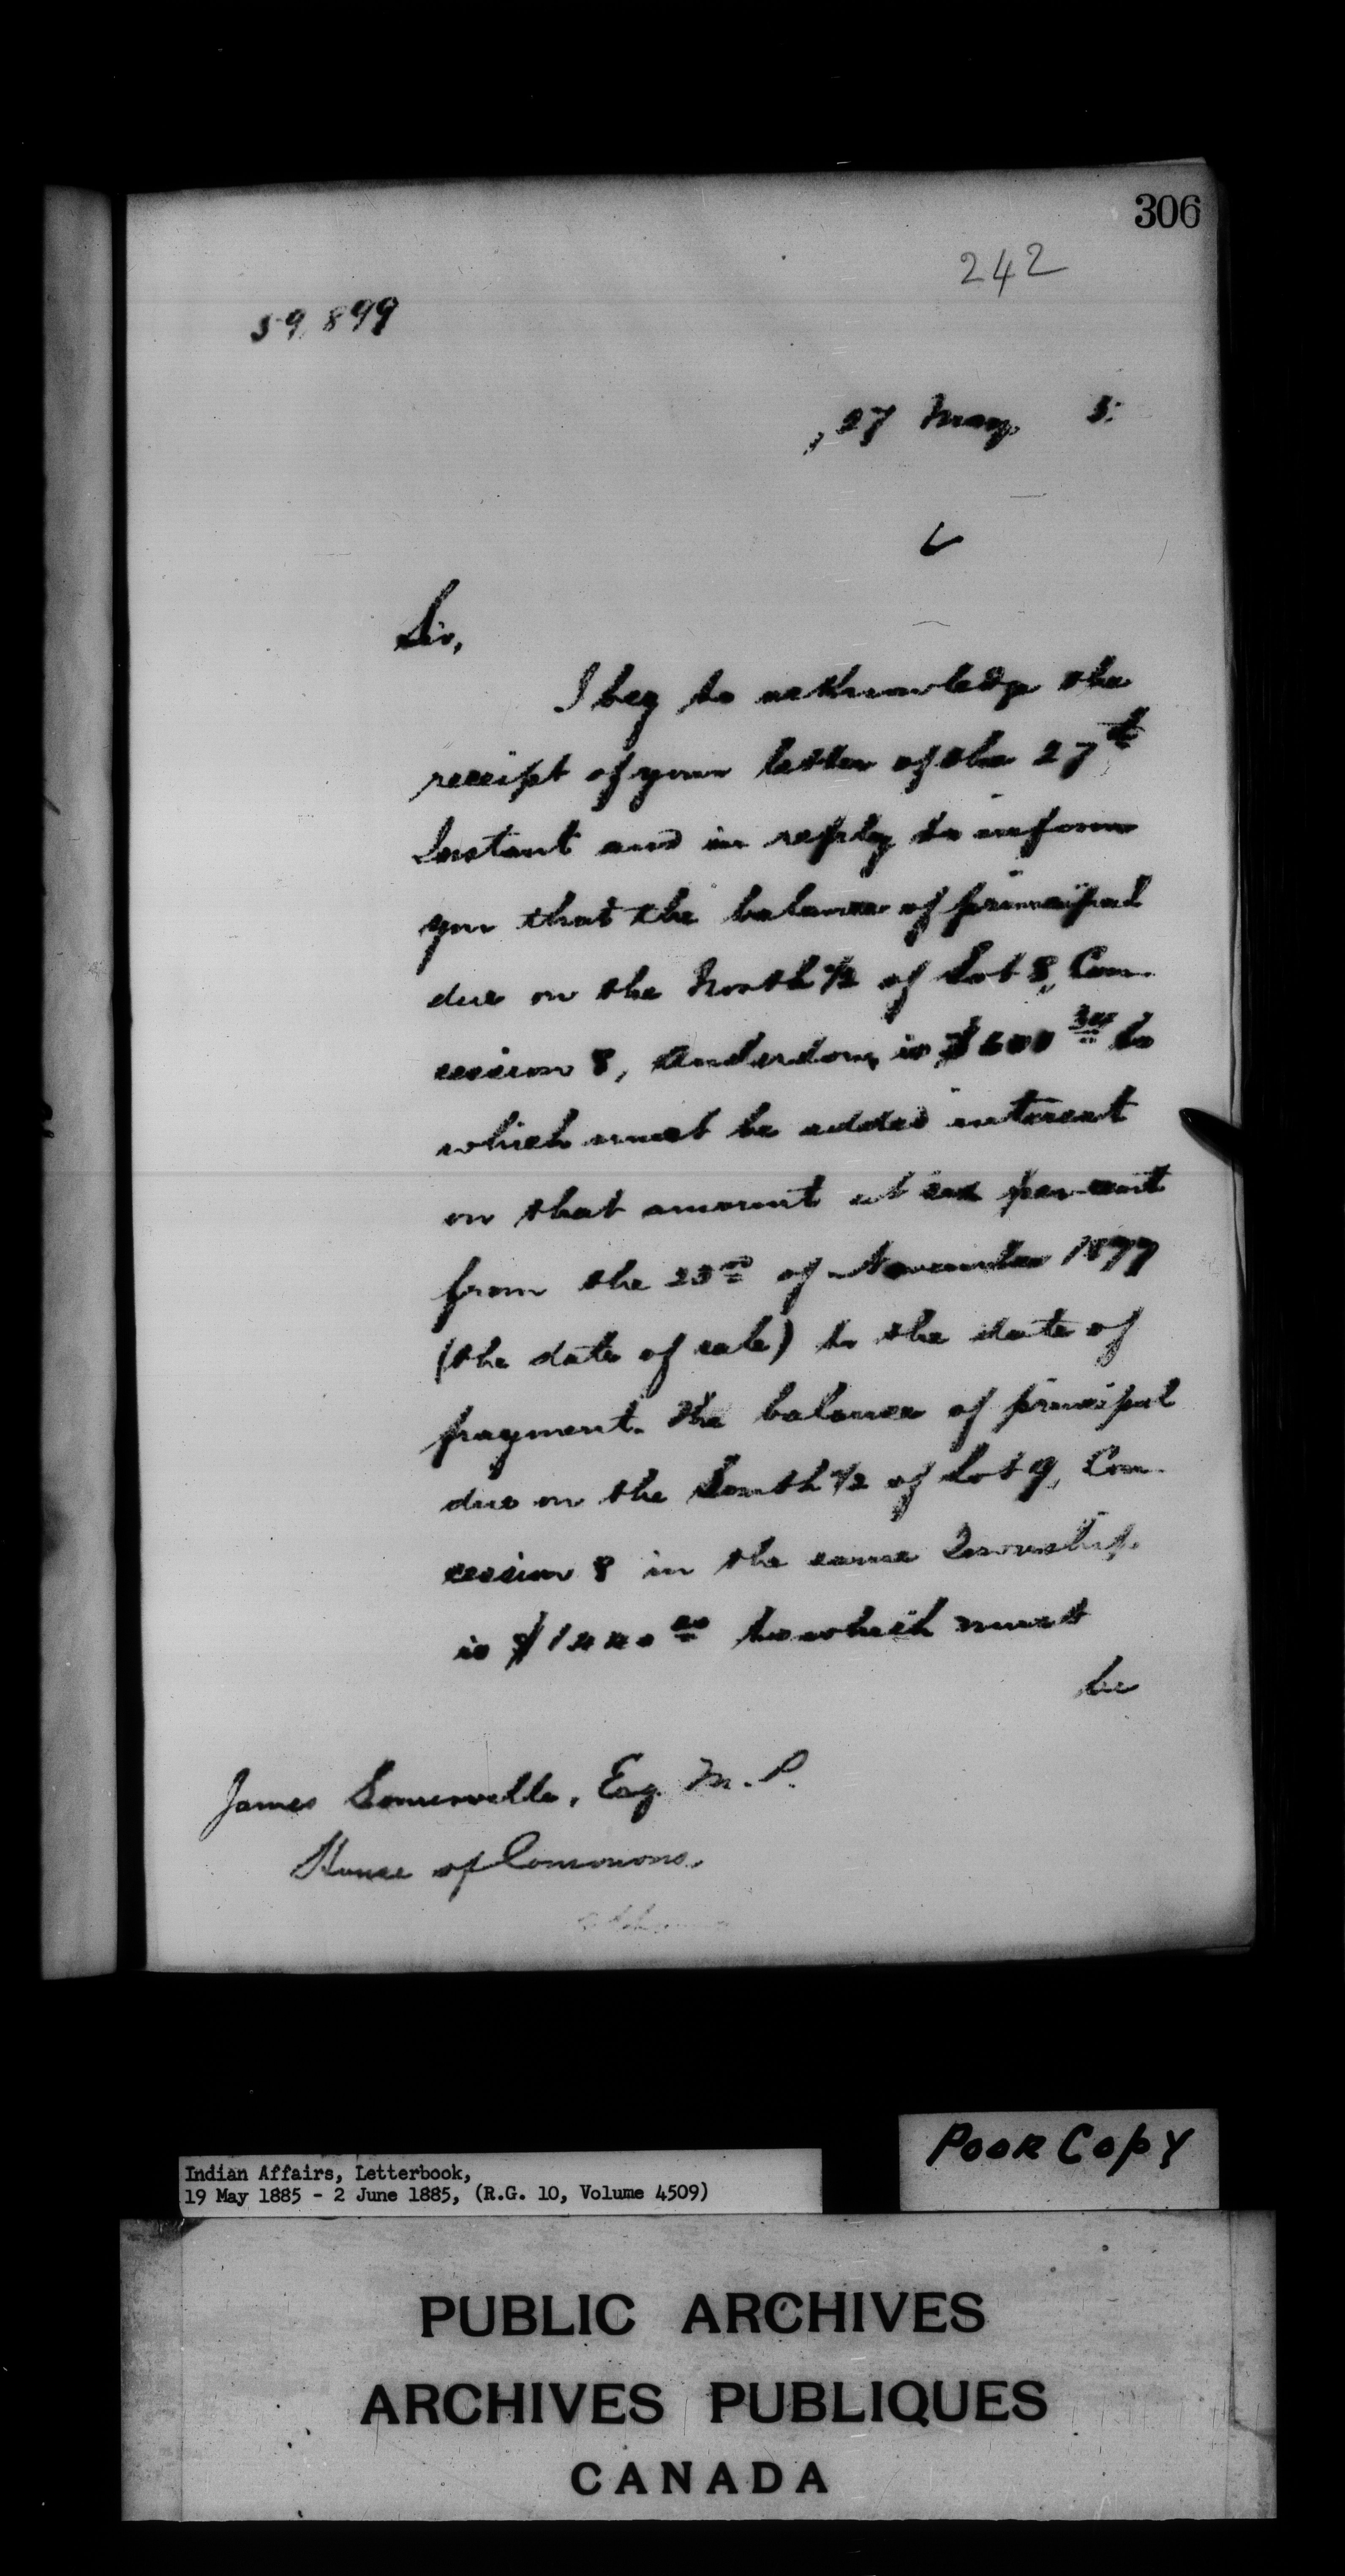 306
242
59,899
27 May 5.
Sir,
I beg to acknowledge the
receipt of your letter of the 27th
Instant and in reply to inform
you that the balance of principal
due on the North ½ of Lot 8, Con-
cession 8, Anderdon, is $600 to
which must be added interest
on that amount at six per-cent
from the 23rd of November 1877
(the date of sale) to the date of
payment. The balance of principal
due on the South ½ of Lot 9, Con-
cession 8 in the same Township
is to which must
be
James Somerville, Esq. M.P.
House of Commons.
POOR COPY
Indian Affairs, Letterbook,
19 May 1885 - 2 June 1885, (R.G. 10, Volume 4509)
PUBLIC ARCHIVES
ARCHIVES PUBLIQUES
CANADA